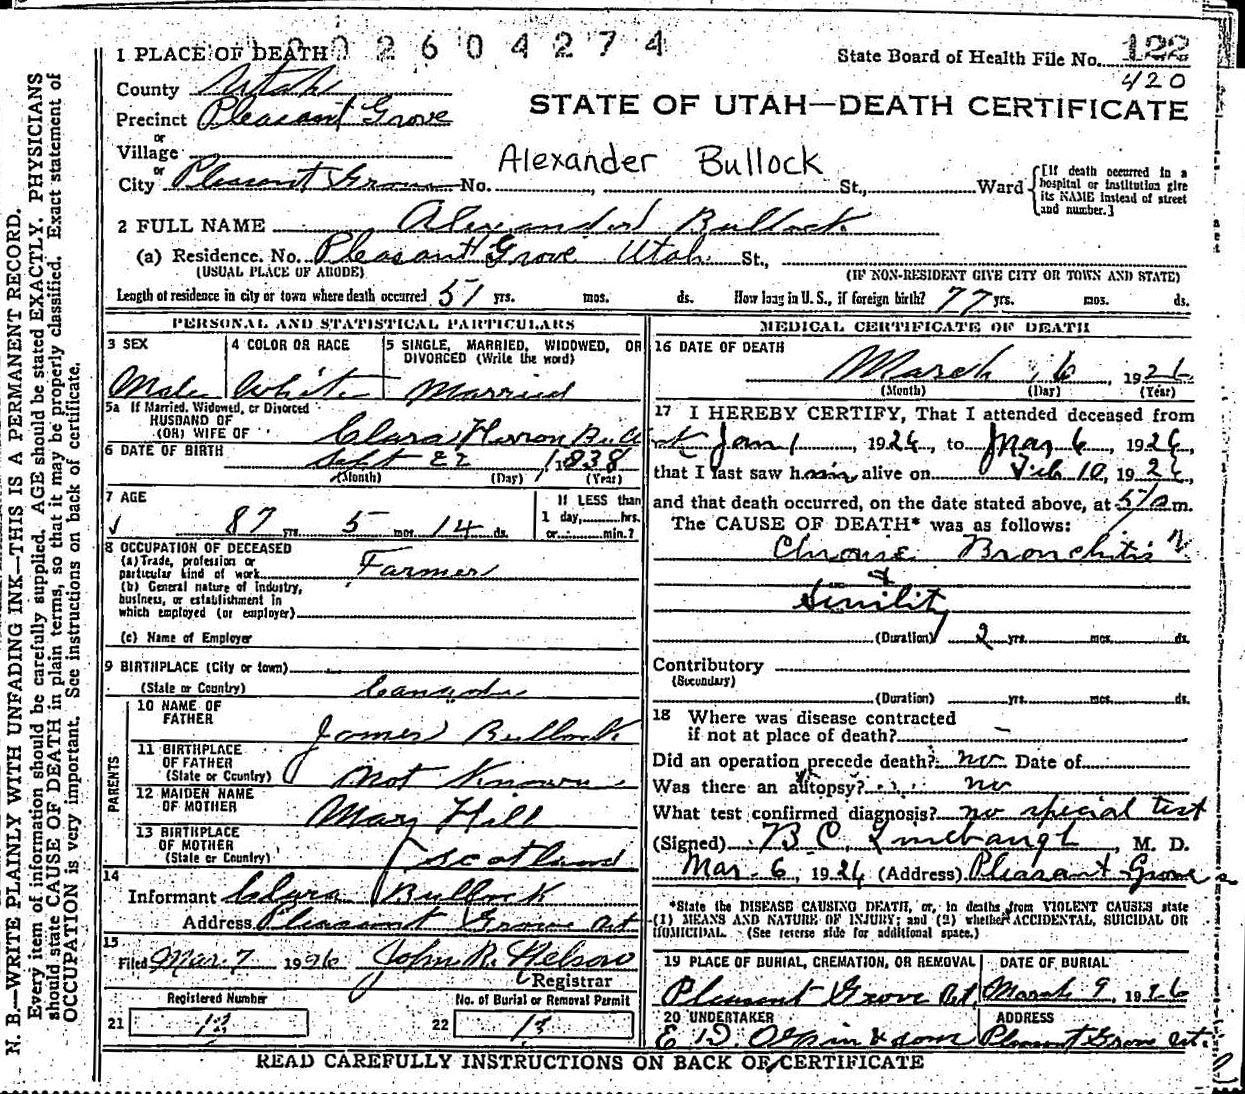 1 PLACE OF DEATH 1 0 0 2 6 0 4 2 7 4 State Board of Health File No. 122
420
County Utah
STATE OF UTAH—DEATH CERTIFICATE
Precinct Pleasant Grove
or
Village
Alexander Bullock
or
City Pleasant Grove No. , St., Ward [If death occurred in a hospital or institution give its NAME instead of street and number.]
2 FULL NAME Alexander Bullock
(a) Residence. No. Pleasant Grove Utah St.,
(USUAL PLACE OF ABODE) (IF NON-RESIDENT GIVE CITY OR TOWN AND STATE)
Length of residence in city or town where death occurred 51 yrs. mos. ds. How long in U.S., if foreign birth? 77 yrs. mos. ds.
PERSONAL AND STATISTICAL PARTICULARS
3 SEX
Male
4 COLOR OR RACE
White
5 SINGLE, MARRIED, WIDOWED, OR
DIVORCED (Write the word)
Married
5a If Married, Widowed, or Divorced
HUSBAND OF
(OR) WIFE OF Clara Herron Bullock
6 DATE OF BIRTH Sept 22, 1838
(Month) (Day) (Year)
7 AGE
87 yrs. 5 mos. 14 ds.
If LESS than
1 day, hrs.
or min.?
8 OCCUPATION OF DECEASED
(a) Trade, profession or
particular kind of work Farmer
(b) General nature of industry,
business, or establishment in
which employed (or employer)
(c) Name of Employer
9 BIRTHPLACE (City or town)
(State or Country) Canada
PARENTS
10 NAME OF
FATHER James Bullock
11 BIRTHPLACE
OF FATHER
(State or Country) Not Known
12 MAIDEN NAME
OF MOTHER Mary Hill
13 BIRTHPLACE
OF MOTHER
(State or Country) Scotland
14
Informant Clara Bullock
Address Pleasant Grove Ut
15
Filed Mar. 7 1926 John R. Nelson
Registrar
Registered Number
21 13
No. of Burial or Removal Permit
22 13
MEDICAL CERTIFICATE OF DEATH
16 DATE OF DEATH
March 6, 1926
(Month) (Day) (Year)
17 I HEREBY CERTIFY, That I attended deceased from
Jan 1, 1926, to Mar 6, 1926,
that I last saw him alive on Feb 10, 1926,
and that death occurred, on the date stated above, at m.
The CAUSE OF DEATH* was as follows:
Chronic Bronchitis
&
Senility
(Duration) 2 yrs. mos. ds.
Contributory
(Secondary)
(Duration) yrs. mos. ds.
18 Where was disease contracted
if not at place of death? —
Did an operation precede death? no Date of
Was there an autopsy? no
What test confirmed diagnosis? no special test
(Signed) B C Linebaugh, M. D.
Mar. 6, 1926 (Address) Pleasant Grove
*State the DISEASE CAUSING DEATH, or, in deaths from VIOLENT CAUSES state
(1) MEANS AND NATURE OF INJURY; and (2) whether ACCIDENTAL, SUICIDAL OR
HOMICIDAL. (See reverse side for additional space.)
19 PLACE OF BURIAL, CREMATION, OR REMOVAL
Pleasant Grove Ut.
DATE OF BURIAL
March 9, 1926
20 UNDERTAKER
E D. Olpin & sons
ADDRESS
Pleasant Grove Ut.
READ CAREFULLY INSTRUCTIONS ON BACK OF CERTIFICATE
N. B.—WRITE PLAINLY WITH UNFADING INK—THIS IS A PERMANENT RECORD.
Every item of information should be carefully supplied. AGE should be stated EXACTLY. PHYSICIANS
should state CAUSE OF DEATH in plain terms, so that it may be properly classified. Exact statement of
OCCUPATION is very important. See instructions on back of certificate.